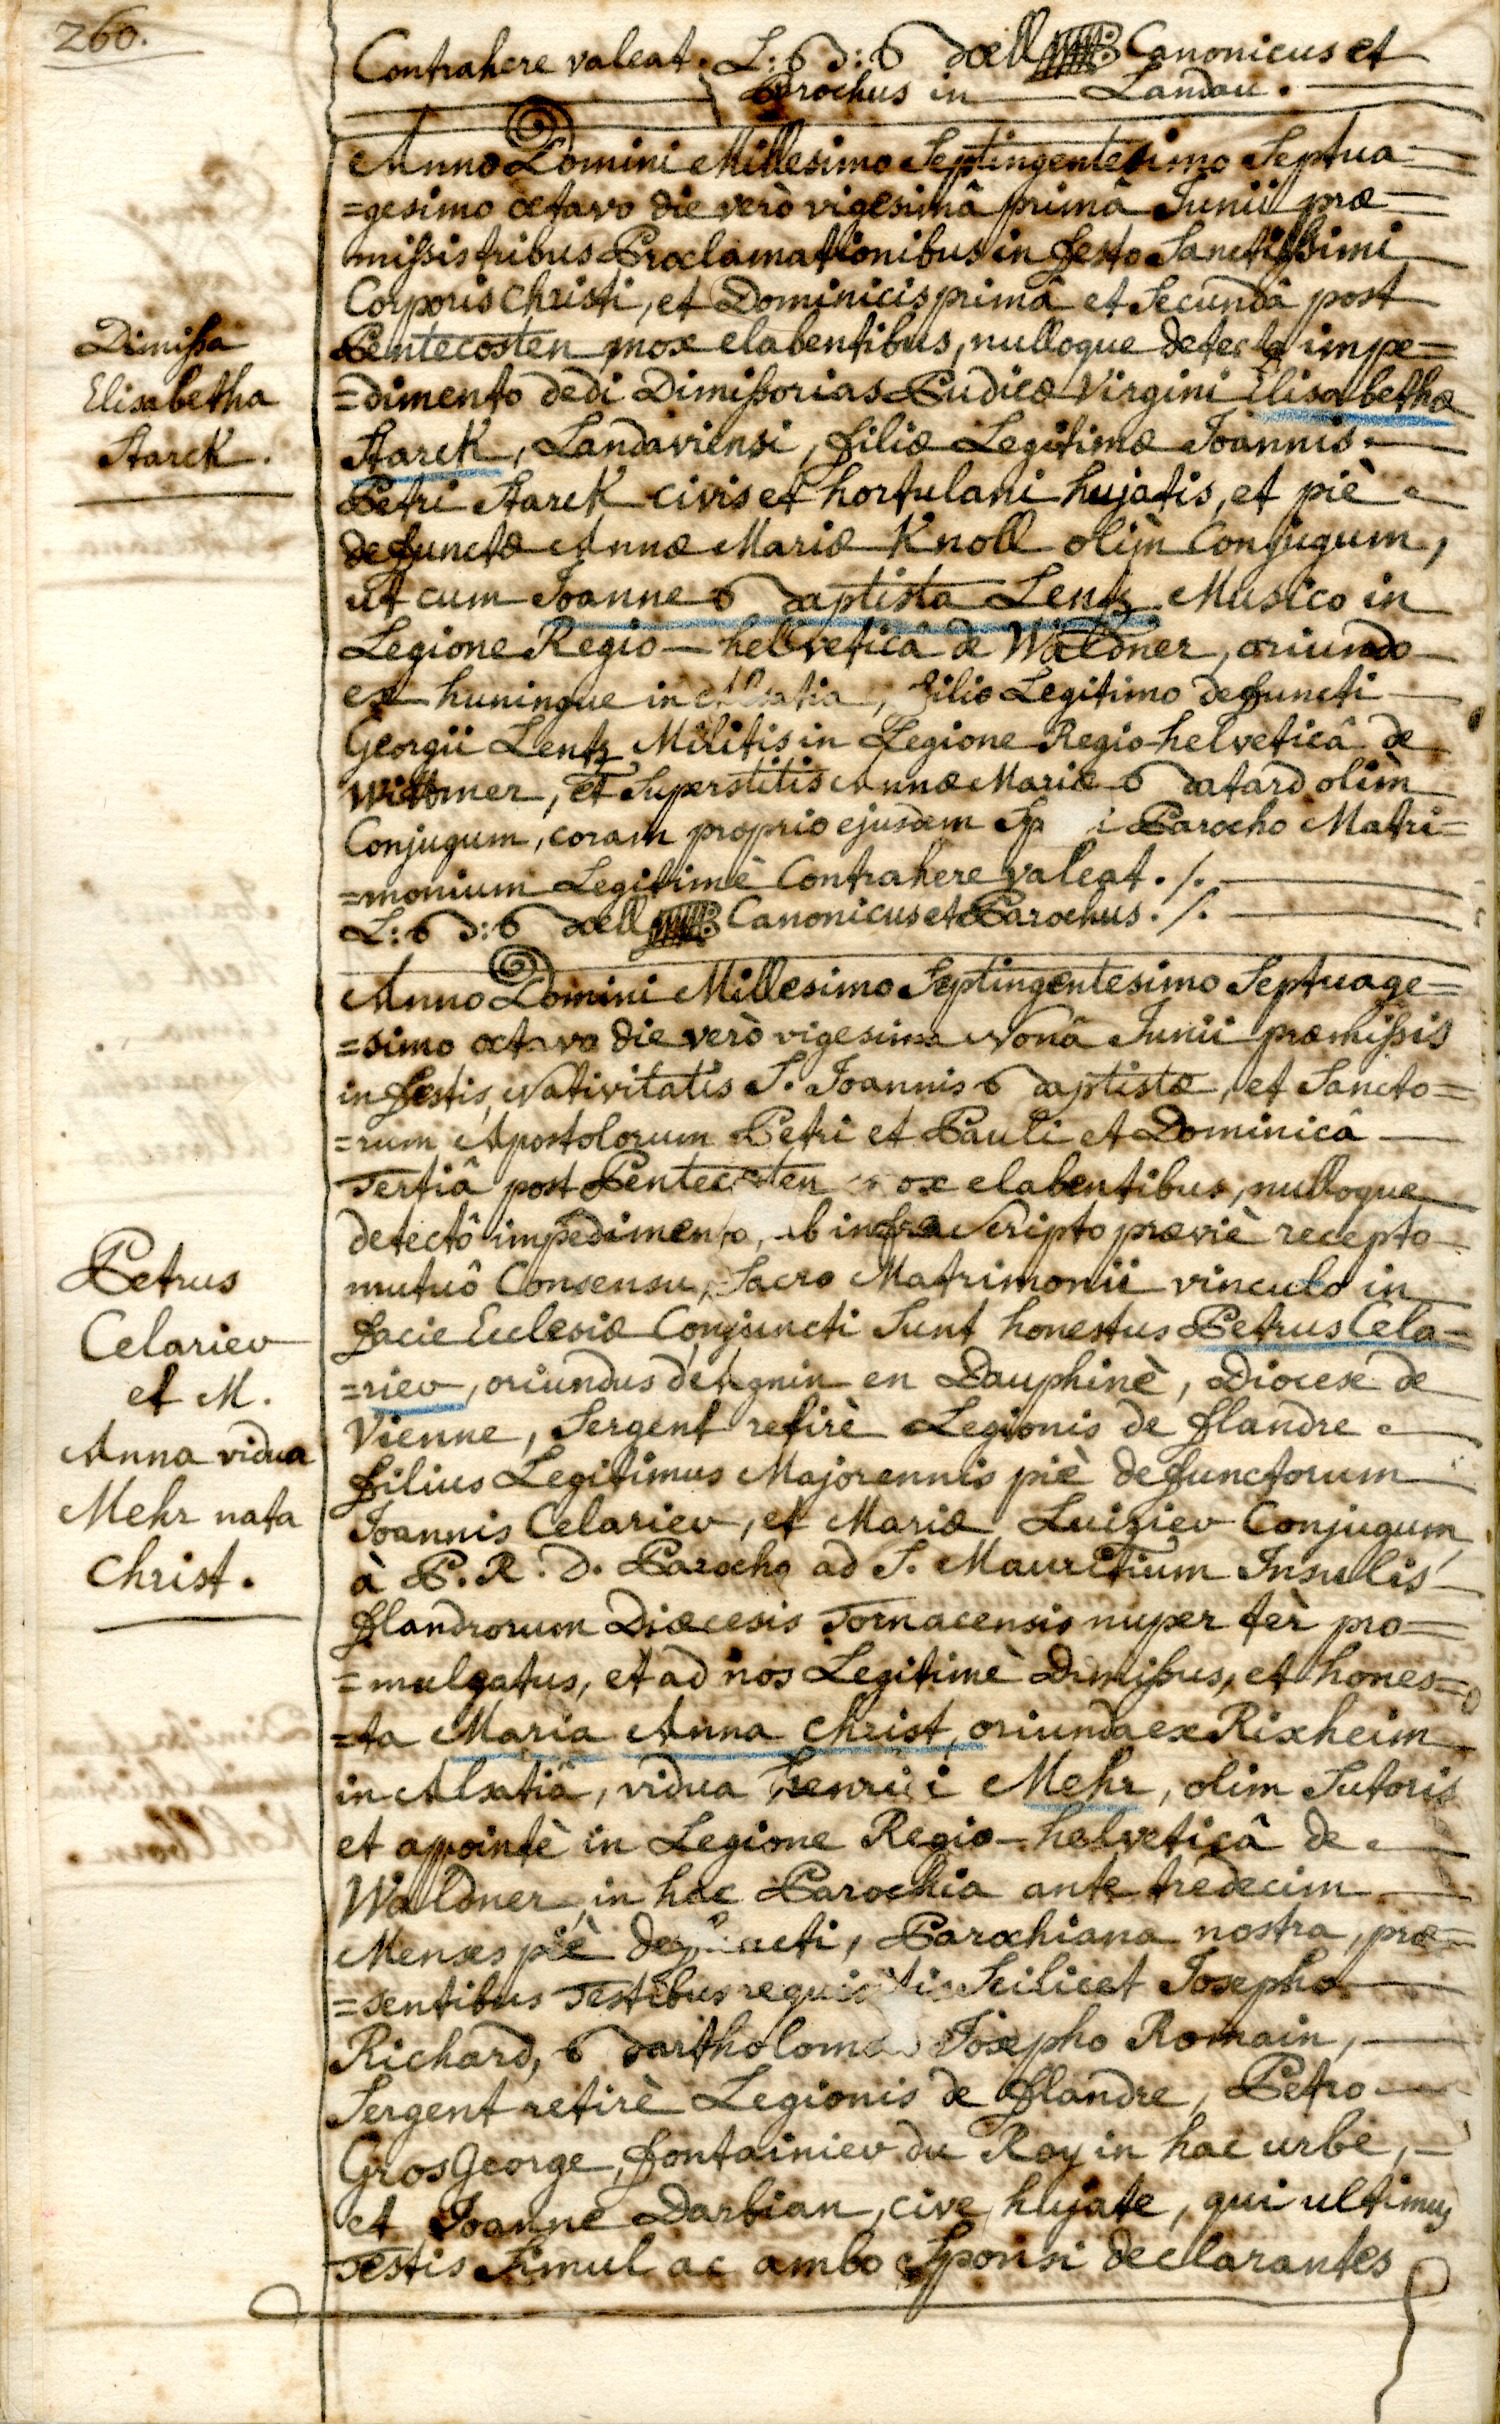 260.
Contrahere valeat. L: B: Böell Canonicus et
Parochus in Landau.
Anno Domini Millesimo Septingentesimo Septua=
=gesimo octavo die verò vigesimâ primâ Junii præ=
missis tribus Proclamationibus in festo Sanctissimi
Corporis Christi, et Dominicis primâ et Secundâ post
Pentecosten mox elabentibus, nulloque detecto impe=
=dimento dedi Dimissorias Pudicæ Virgini Elisabethæ
Starck, Landaviensi, filiæ Legitimæ Joannis
Petri Starck civis et hortulani hujatis, et piè
defunctæ Annæ Mariæ Knoll olim Conjugum,
ut cum Joanne Baptista Lentz Musico in
Legione Regio-helveticâ de Waldner, oriundo
ex huningue in Alsatia, filio Legitimo defuncti
Georgii Lentz Militis in Legione Regio-helveticâ de
Wittmer, et Superstitis Annæ Mariæ Batard olim
Conjugum, coram proprio ejusdem Sp i Parocho Matri=
=monium Legitimè Contrahere valeat. ./.
L: B: Böell Canonicus et Parochus. ./.
Dimissa
Elisabetha
Starck.
Anno Domini Millesimo Septingentesimo Septuage=
=simo octavo die verò vigesima Nonâ Junii præmissis
in festis Nativitatis S. Joannis Baptistæ, et Sancto=
=rum Apostolorum Petri et Pauli et Dominicâ
Tertiâ post Pentecosten mox elabentibus, nulloque
detectô impedimento, ab infra Scripto præviè recepto
mutuô Consensu, Sacro Matrimonii vinculo in
facie Ecclesiæ Conjuncti Sunt honestus Petrus Cela=
=riev, oriundus en Dauphinè, Diocese de
Vienne, Sergent retirè Legionis de flandre
filius Legitimus Majorennis piè defunctorum
Joannis Celariev, et Mariæ Luiziev Conjugum,
à P. R. D. Parocho ad S. Mauritium Insulis
flandrorum Diœcesis Tornacensis nuper ter pro=
=mulgatus, et ad nos Legitimè Dimissus, et hones=
=ta Maria Anna Christ, oriunda ex Rixheim
in Alsatiâ, vidua henrici Mehr, olim Sutoris
et appointè in Legione Regio-helveticâ de
Waldner, in hac Parochia ante tredecim
Menses piè defuncti, Parochiana nostra, præ=
=sentibus Testibus requisitis Scilicet Josepho
Richard, Bartholomæo Josepho Romain,
Sergent retirè Legionis de flandre, Petro
GrosGeorge, fontainiev du Roy in hac urbe,
et Joanne Darbian, cive hujate, qui ultimus
Testis Simul ac ambo Sponsi declarantes
Petrus
Celariev
et M.
Anna vidua
Mehr nata
Christ.